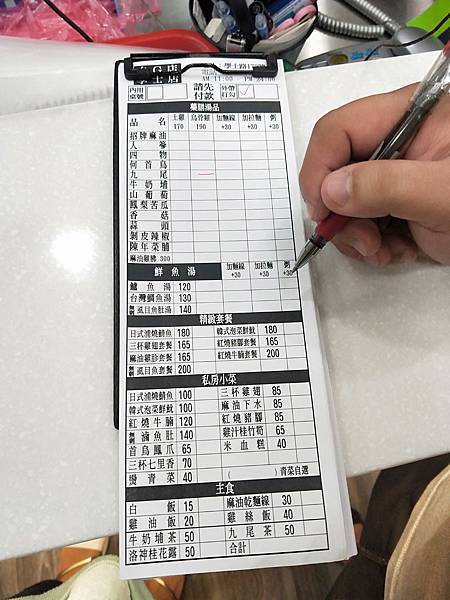 電話
AM 11:00 PM 24:00
內用桌號 請先付款 外帶打勾
藥膳湯品
品名 土雞170 烏骨雞190 加麵線+30 加拉麵+30 粥+30
招牌麻油
人蔘
四物
何首烏
九尾
牛奶埔
山葡萄
鳳梨苦瓜
香菇
蒜頭
剝皮辣椒
陳年菜脯
麻油雞腰 300
鮮魚湯 加麵線+30 加拉麵+30 粥+30
鱸魚湯 120
台灣鯛魚湯 130
無刺虱目魚肚湯 140
精緻套餐
日式浦燒鯖魚 180 韓式泡菜鮮魷 180
三杯雞翅套餐 165 紅燒豬腳套餐 165
麻油雞胗套餐 165 紅燒牛腩套餐 200
無刺虱目魚套餐 200
私房小菜
日式浦燒鯖魚 100 三杯雞翅 85
韓式泡菜鮮魷 100 麻油下水 85
紅燒牛腩 120 紅燒豬腳 85
無刺滷魚肚 140 雞汁桂竹筍 65
首烏鳳爪 65 米血糕 40
三杯七里香 70
燙青菜 40 ( )青菜自選
主食
白飯 15 麻油乾麵線 30
雞油飯 20 雞絲飯 40
牛奶埔茶 50 九尾茶 50
洛神桂花露 50 合計